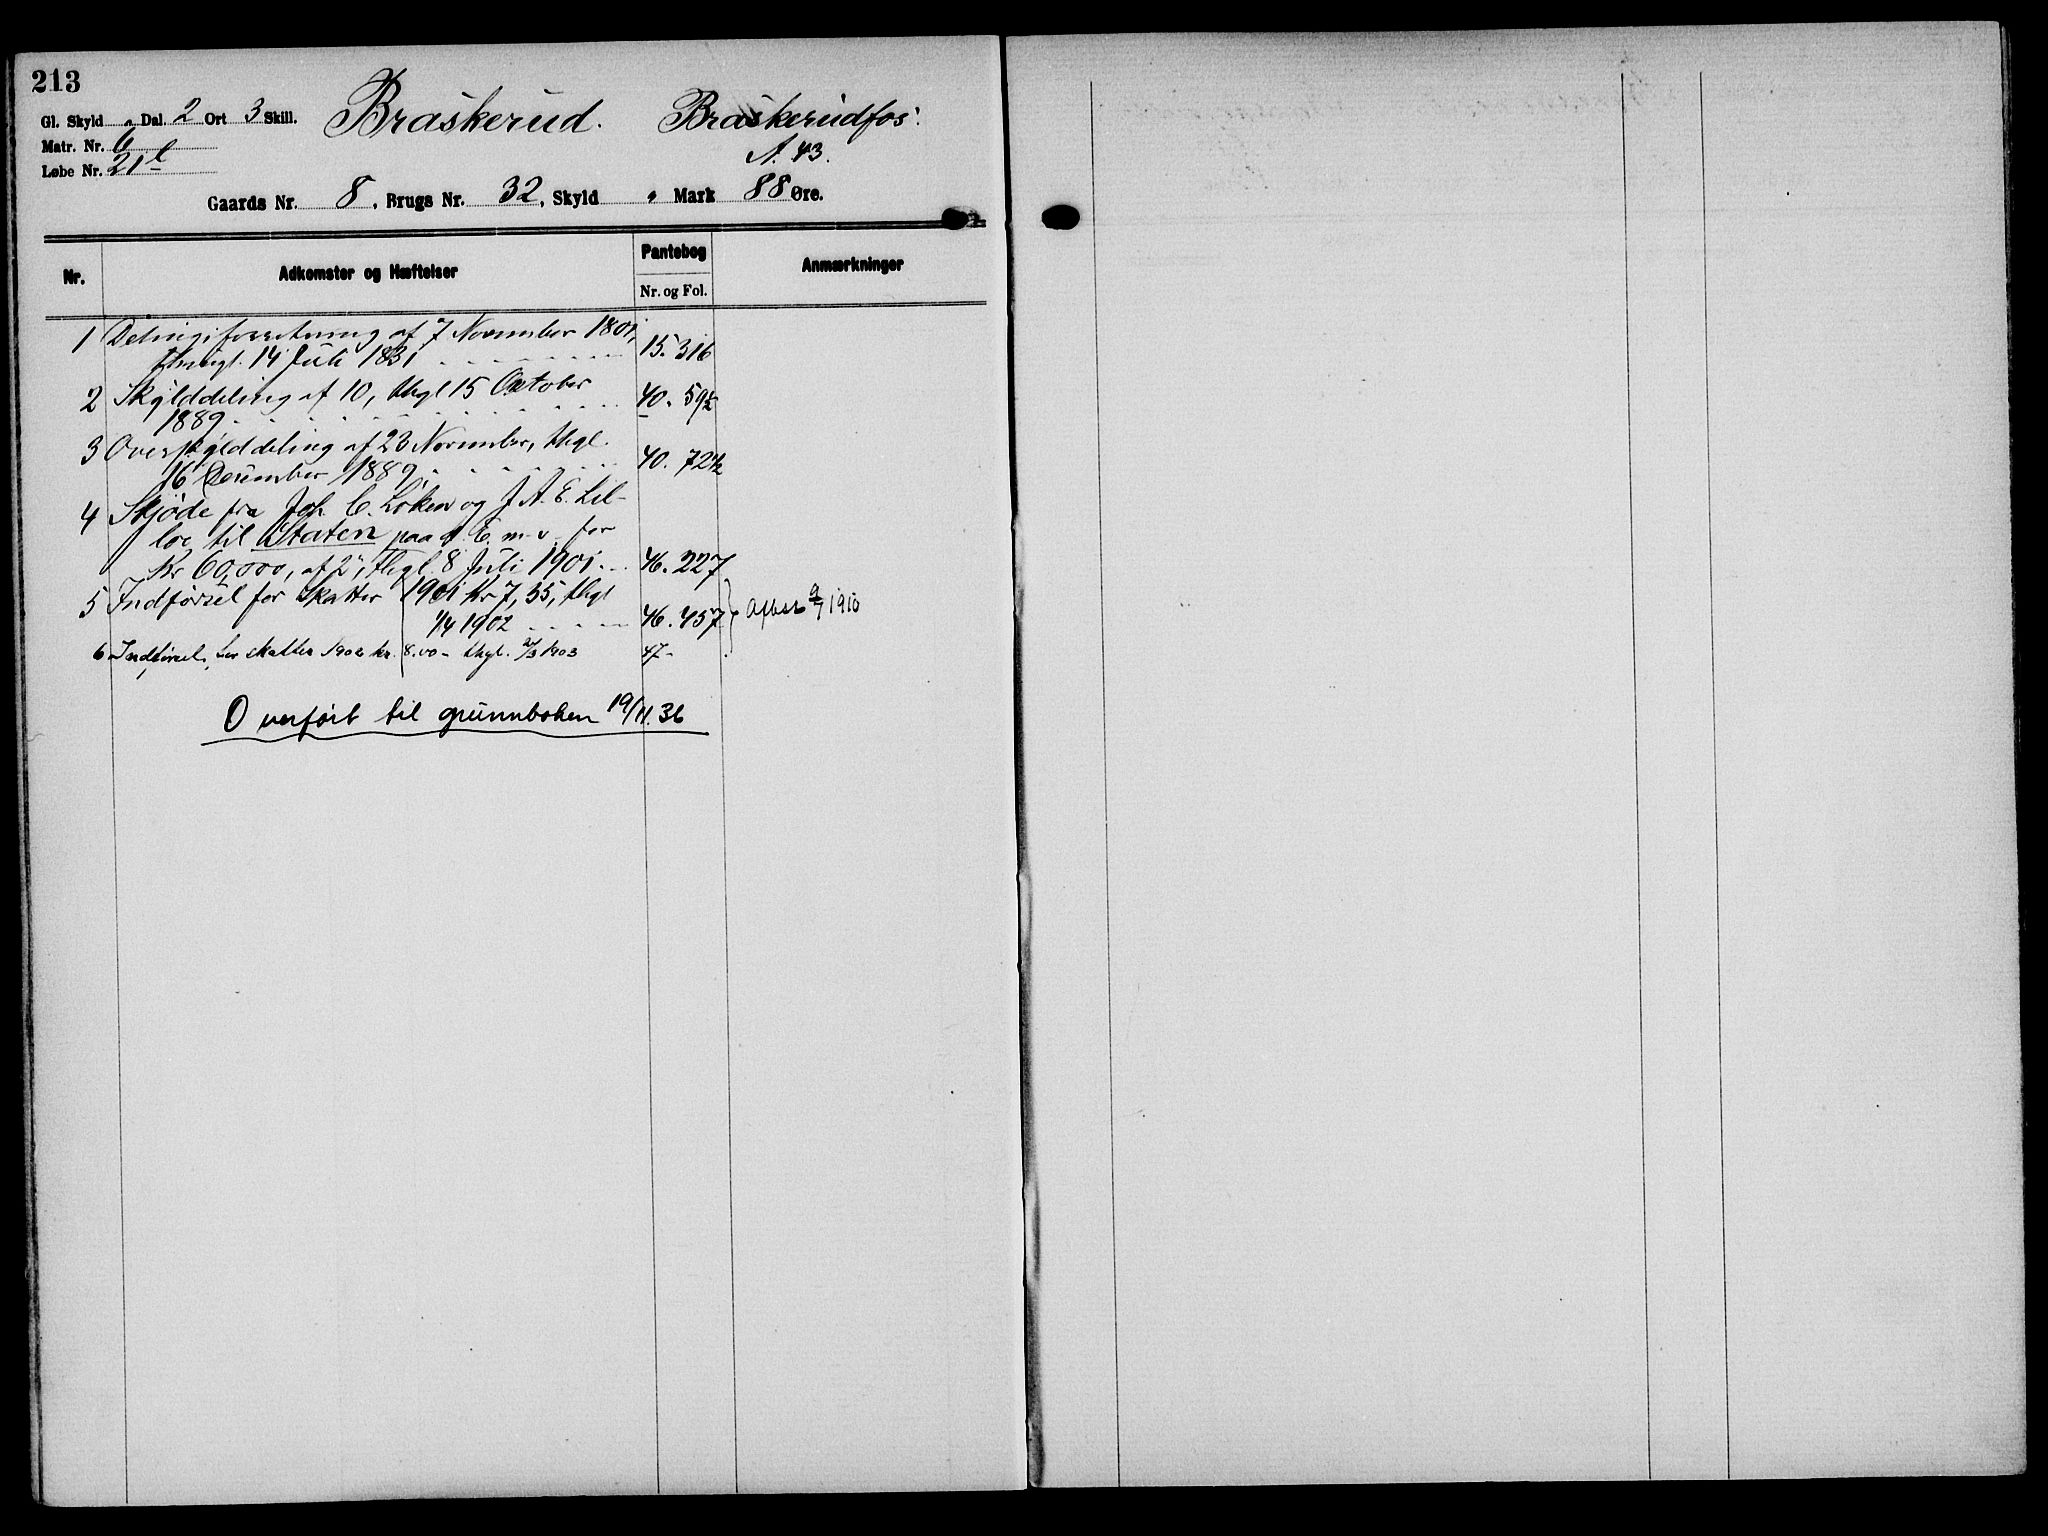 213
Gl. Skyld " Dal. 2 Ort 3 Skill. Braskerud. Braskerudfos.
Matr. Nr. 6
A. 43.
Løbe Nr. 21 l
Gaards Nr. 8, Brugs Nr. 32, Skyld " Mark 88 Øre.
Nr. Adkomster og Hæftelser Pantebog Anmærkninger
Nr. og Fol.
1 Delingsforretning af 7 November 1801,
thingl. 14 Juli 1831 15. 316
2 Skylddeling af 10, thgl 15 October
1889 40. 592
3 Overskylddeling af 23 November, thgl.
16 December 1889 40. 72
4 Skjøde fra Joh. C. Løken og J. A. E. Lil-
loe til Staten paa d. E. m. v. for
Kr 60,000, af 2, thgl. 8 Juli 1901 46. 227
5 Indførsel for Skatter 1901 Kr 7,35, thgl
1/4 1902 46. 457 Aflæst 9/7 1910
6 Indførsel for skatter 1902 kr. 8.00 - thgl. 1903 47-
Overført til grunnboken 19/11.36